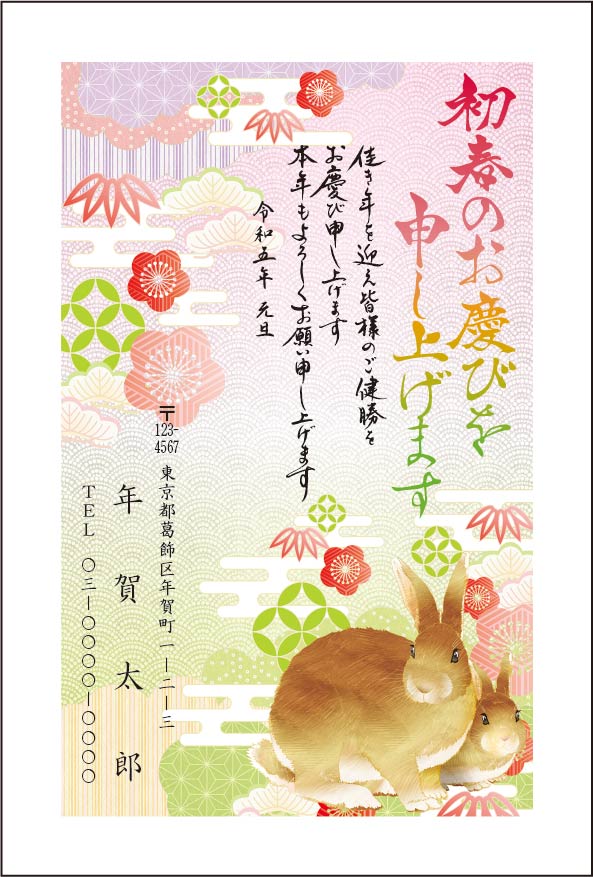 初春のお慶びを
申し上げます
佳き年を迎え皆様のご健勝を
お慶び申し上げます
本年もよろしくお願い申し上げます
令和五年 元旦
〒123-4567 東京都葛飾区年賀町一-二-三
年賀太郎
TEL 〇三-〇〇〇〇-〇〇〇〇